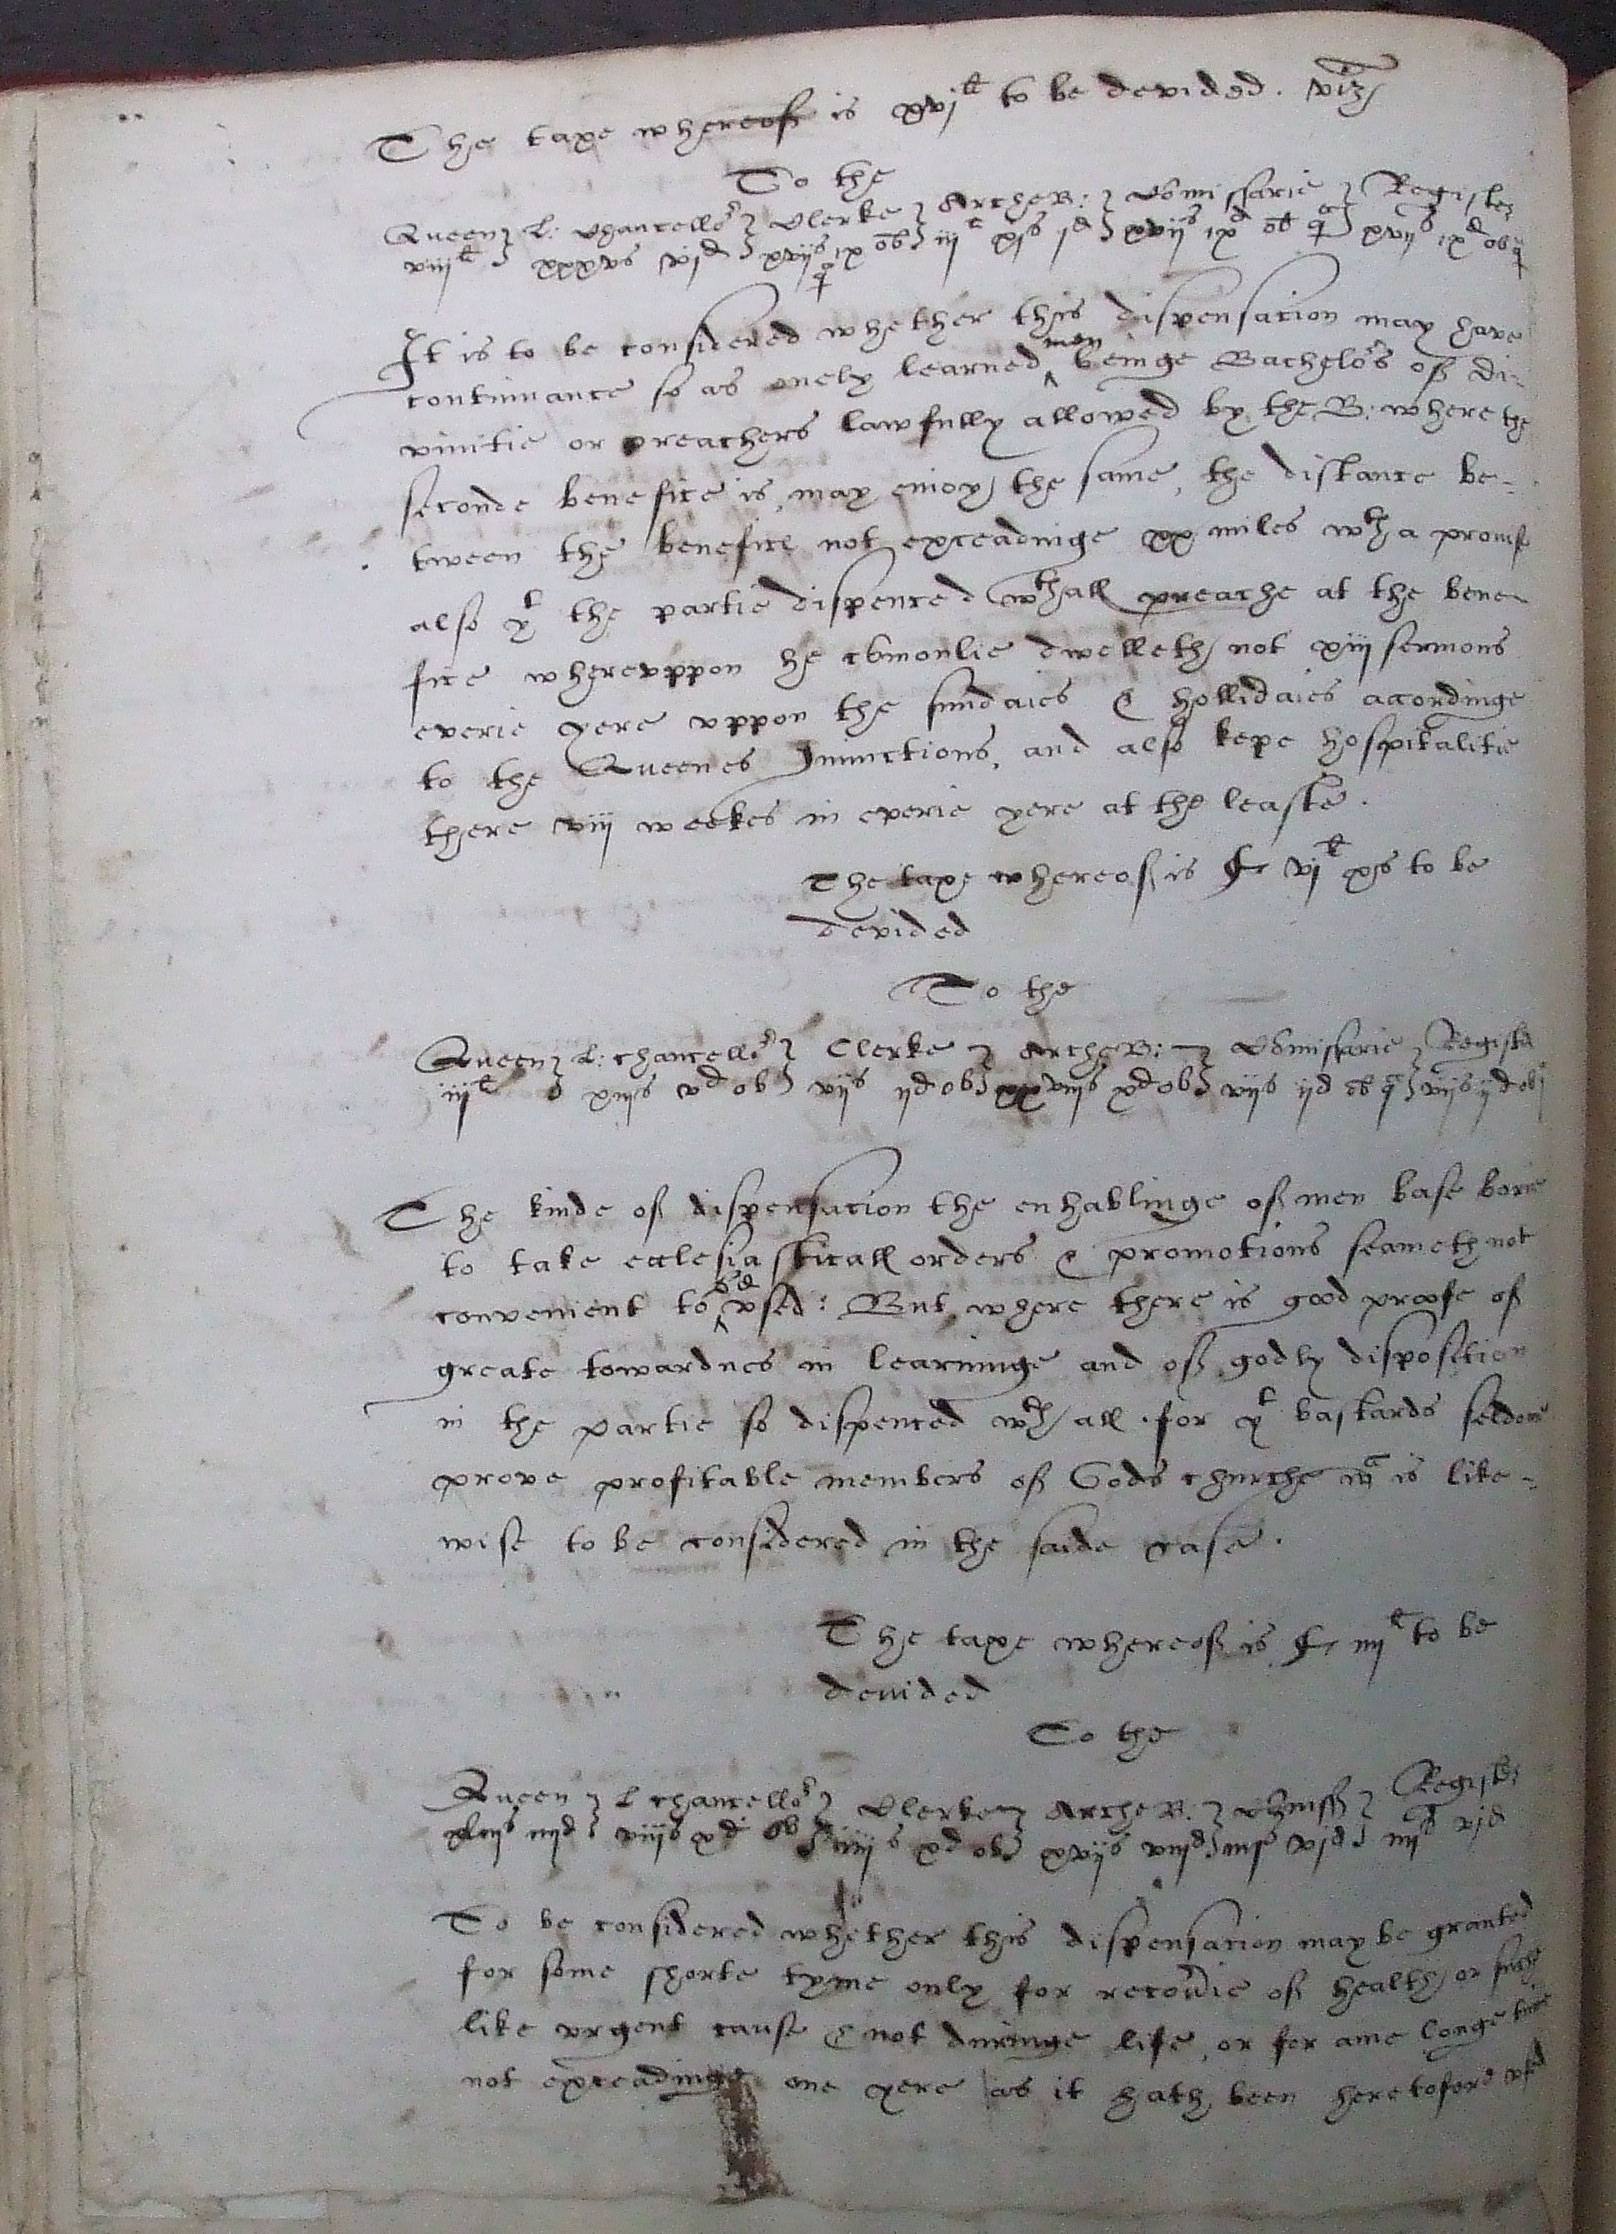 The taxe whereof is xvj li to be devided. viz
To the
Queen L: Chancellor Clerke ArcheB: Comissarie Register
viij li xxxvs vjd xvijs ix ob q iij li xjs jd xvijs ixd ob q xvijs ixd ob q
It is to be considered whether this dispensacion may have
continuance so as onely learned ^men beinge Bachelors of di-
vinitie or preachers lawfully allowed by the B: where the
seconde benefice is, may enioy the same, the distance be-
tween the benefice not exceadinge xx miles wth a provise
also yt the partie dispenced wthall preache at the bene-
fice wherevppon he comonlie dwelleth not xiij sermons
everie yere vppon the sundaies & hollidaies accordinge
to the Queenes Iniunctions, and also kepe hospitalitie
there viij weekes in everie yere at the leaste.
The taxe whereof is vj li xs to be
devided
To the
Queen L: chancellor Clerke ArcheB: Comissarie Register
iij li xiijs vd ob vijs ijd ob xxviijs xd ob vijs ijd ob q vijs ijd ob q
The kinde of dispensacion the enhablinge of men base borne
to take ecclesiasticall orders & promotions seameth not
convenient to ^be vsed: But where there is good proofe of
greate towardnes in learninge and of godly disposition
in the partie so dispenced wth all. for yt bastards seldome
prove profitable members of Gods churche wch is like-
wise to be considered in the saide case.
The taxe whereof is iiij li to be
devided
To the
Queen L chancellor Clerke ArcheB: Comiss Register
iiijd viijs xd ob iiijs xd ob xvijs viijd iiijs vjd iiijs vjd
To be considered whether this dispensacion may be granted
for some shorte tyme only for recoverie of health or suche
like vrgent cause & not duringe life, or for anie longe time
not exceadinge one yere as it hath been heretofore vsed